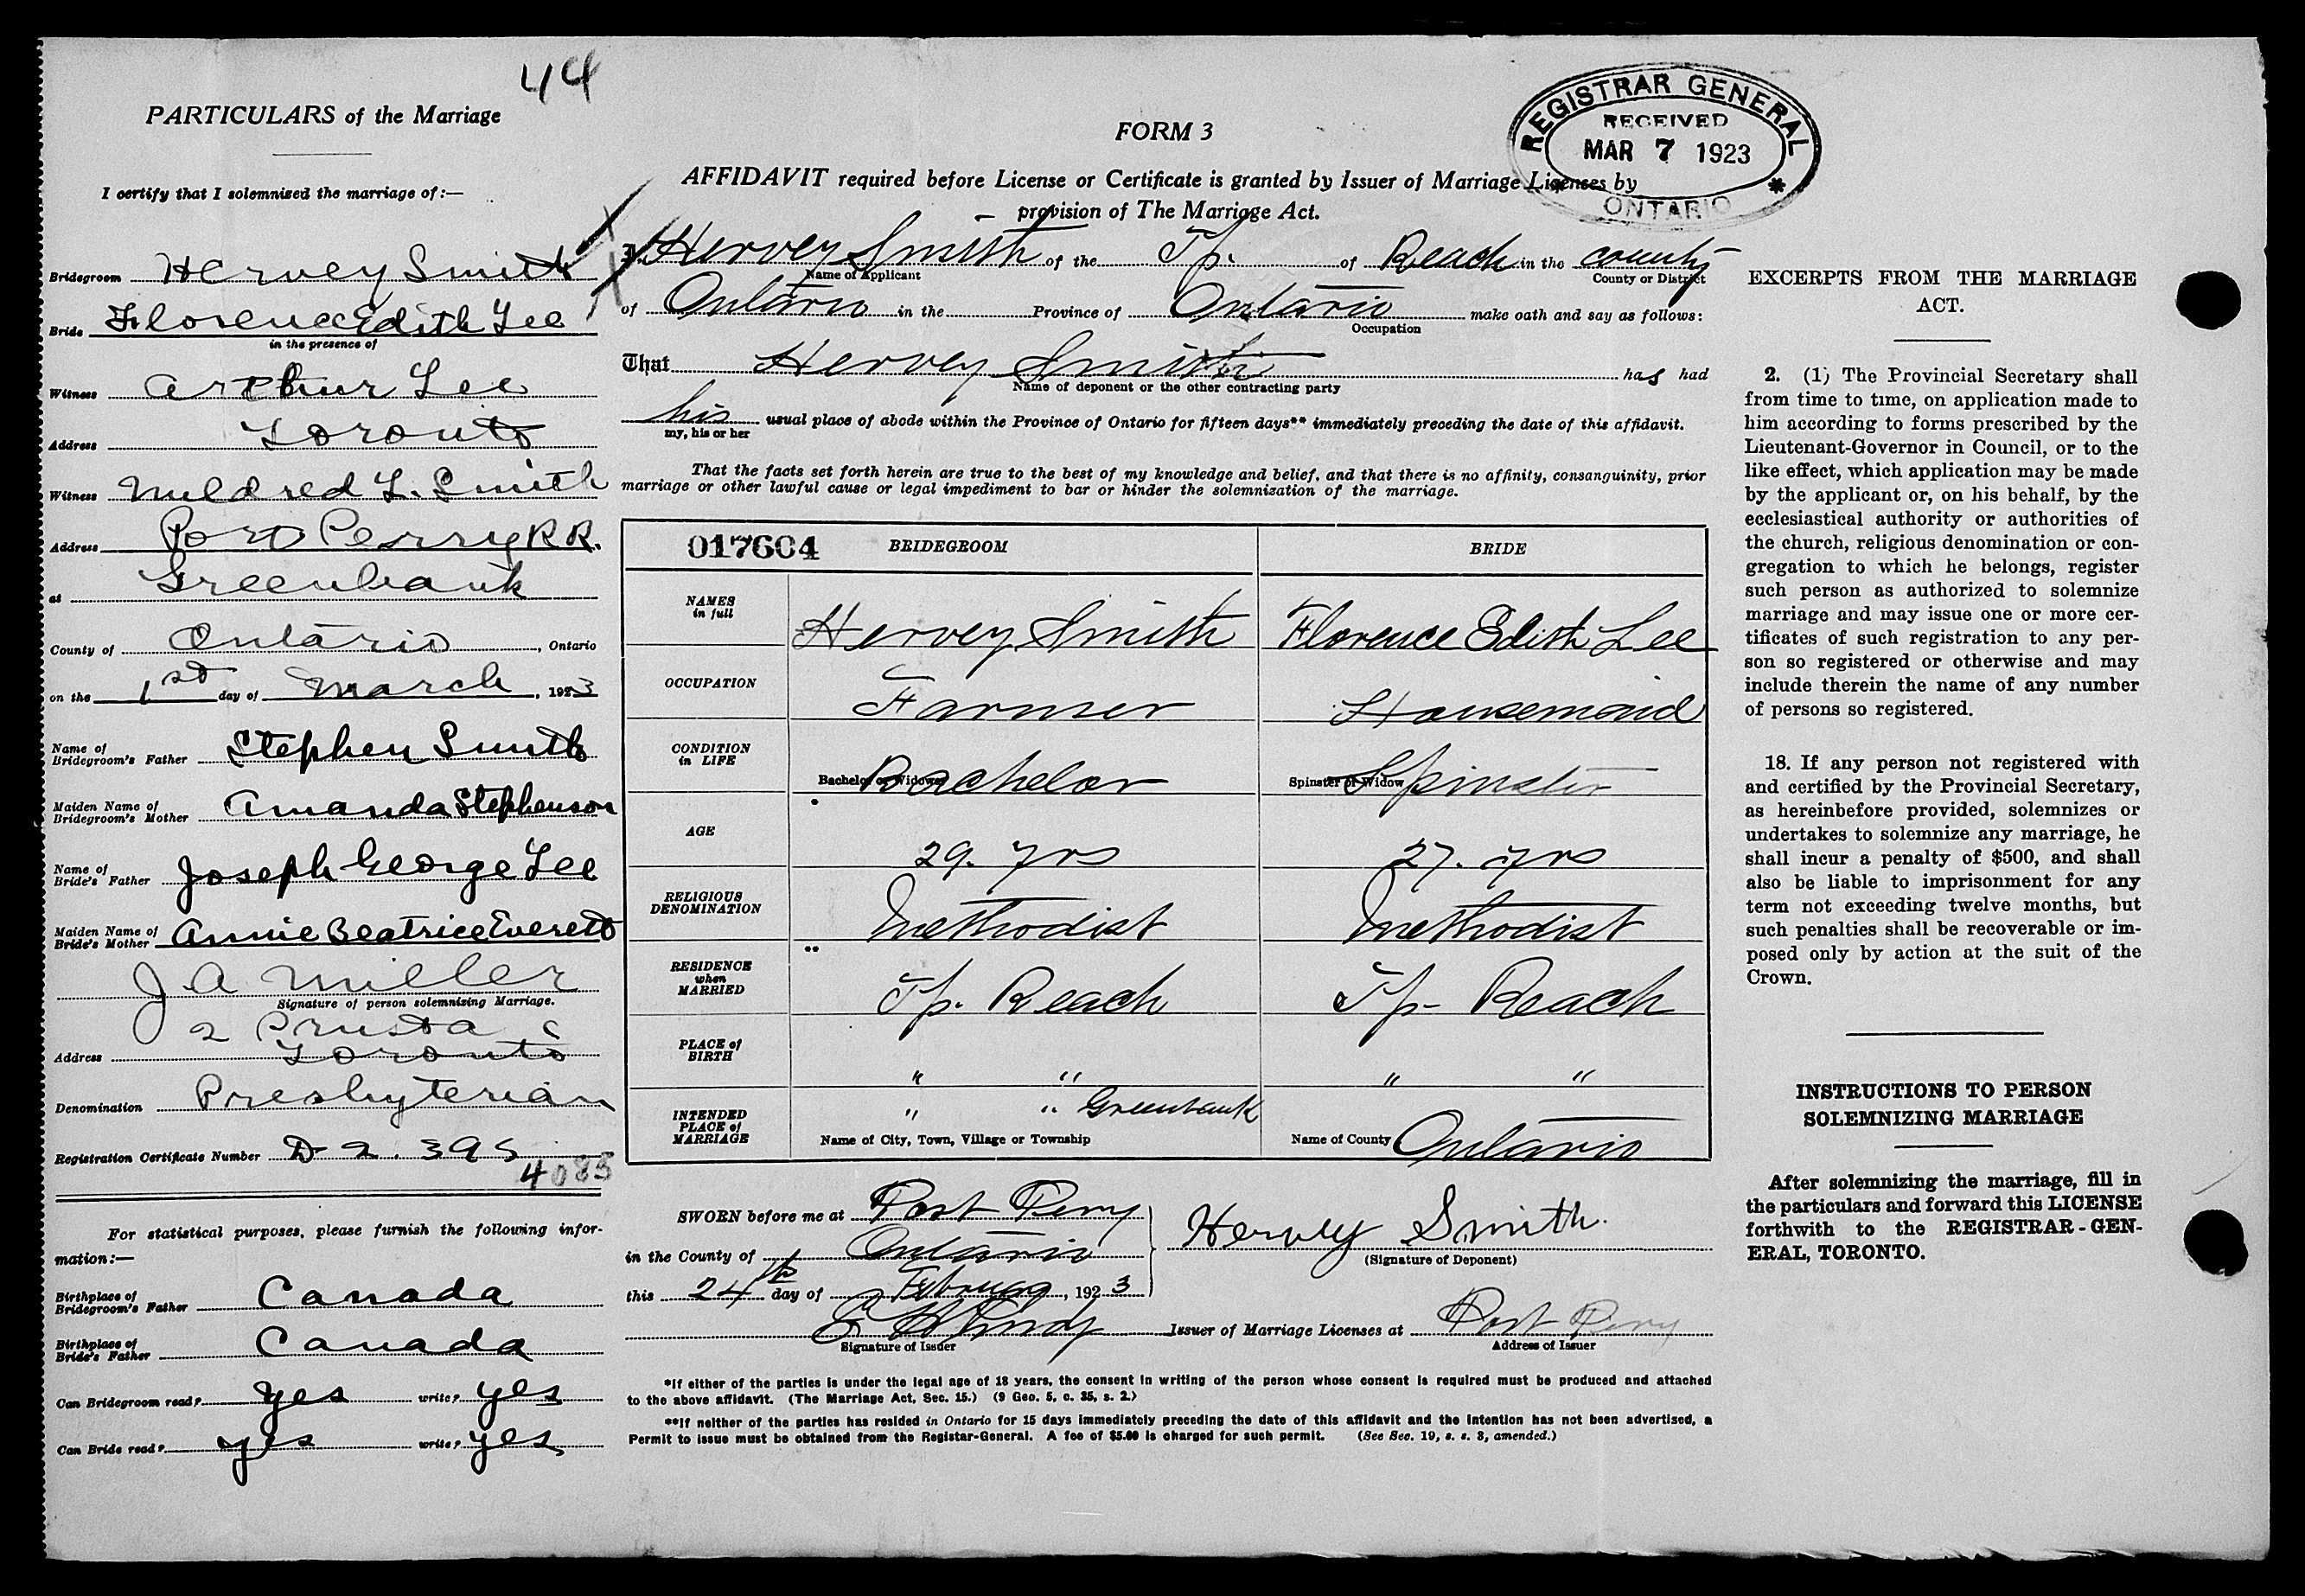 44
PARTICULARS of the Marriage
I certify that I solemnized the marriage of:—
Bridegroom Hervey Smith
Bride Florence Edith Lee
in the presence of
Witness Arthur Lee
Address Toronto
Witness Mildred L. Smith
Address Port Perry R R.
at Greenbank
County of Ontario, Ontario
on the 1st day of March, 1923
Name of
Bridegroom's Father Stephen Smith
Maiden Name of
Bridegroom's Mother Amanda Stephenson
Name of
Bride's Father Joseph George Lee
Maiden Name of
Bride's Mother Annie Beatrice Everett
J A Miller
Signature of person solemnizing Marriage.
2
Address Toronto
Denomination Presbyterian
Registration Certificate Number D 2. 395
4085
For statistical purposes, please furnish the following infor-
mation:—
Birthplace of
Bridegroom's Father Canada
Birthplace of
Bride's Father Canada
Can Bridegroom read? yes write? yes
Can Bride read? yes write? yes
FORM 3
REGISTRAR GENERAL
RECEIVED
MAR 7 1923
ONTARIO
AFFIDAVIT required before License or Certificate is granted by Issuer of Marriage Licenses by
provision of The Marriage Act.
I, Hervey Smith of the Tp. of Reach in the county
Name of Applicant County or District
of Ontario in the Province of Ontario make oath and say as follows:
Occupation
That Hervey Smith has had
Name of deponent or the other contracting party
his usual place of abode within the Province of Ontario for fifteen days** immediately preceding the date of this affidavit.
my, his or her
That the facts set forth herein are true to the best of my knowledge and belief, and that there is no affinity, consanguinity, prior
marriage or other lawful cause or legal impediment to bar or hinder the solemnization of the marriage.
017604 BRIDEGROOM BRIDE
NAMES
in full
Hervey Smith Florence Edith Lee
OCCUPATION
Farmer Housemaid
CONDITION
in LIFE
Bachelor or Widower Bachelor Spinster or Widow Spinster
*
AGE
29. yrs 27. yrs
RELIGIOUS
DENOMINATION
Methodist Methodist
**
RESIDENCE
when
MARRIED
Tp. Reach Tp- Reach
PLACE of
BIRTH
" " " "
INTENDED
PLACE of
MARRIAGE
" " Greenbank
Name of City, Town, Village or Township Name of County Ontario
SWORN before me at Port Perry
in the County of Ontario
this 24th day of February, 1923
Signature of Issuer
Hervey Smith.
(Signature of Deponent)
Issuer of Marriage Licenses at Port Perry
Address of Issuer
*If either of the parties is under the legal age of 18 years, the consent in writing of the person whose consent is required must be produced and attached
to the above affidavit. (The Marriage Act, Sec. 15.) (9 Geo. 5, c. 35, s. 2.)
**If neither of the parties has resided in Ontario for 15 days immediately preceding the date of this affidavit and the intention has not been advertised, a
Permit to issue must be obtained from the Registar-General. A fee of $5.00 is charged for such permit. (See Sec. 19, s. s. 3, amended.)
EXCERPTS FROM THE MARRIAGE
ACT.
2. (1) The Provincial Secretary shall
from time to time, on application made to
him according to forms prescribed by the
Lieutenant-Governor in Council, or to the
like effect, which application may be made
by the applicant or, on his behalf, by the
ecclesiastical authority or authorities of
the church, religious denomination or con-
gregation to which he belongs, register
such person as authorized to solemnize
marriage and may issue one or more cer-
tificates of such registration to any per-
son so registered or otherwise and may
include therein the name of any number
of persons so registered.
18. If any person not registered with
and certified by the Provincial Secretary,
as hereinbefore provided, solemnizes or
undertakes to solemnize any marriage, he
shall incur a penalty of $500, and shall
also be liable to imprisonment for any
term not exceeding twelve months, but
such penalties shall be recoverable or im-
posed only by action at the suit of the
Crown.
INSTRUCTIONS TO PERSON
SOLEMNIZING MARRIAGE
After solemnizing the marriage, fill in
the particulars and forward this LICENSE
forthwith to the REGISTRAR-GEN-
ERAL, TORONTO.